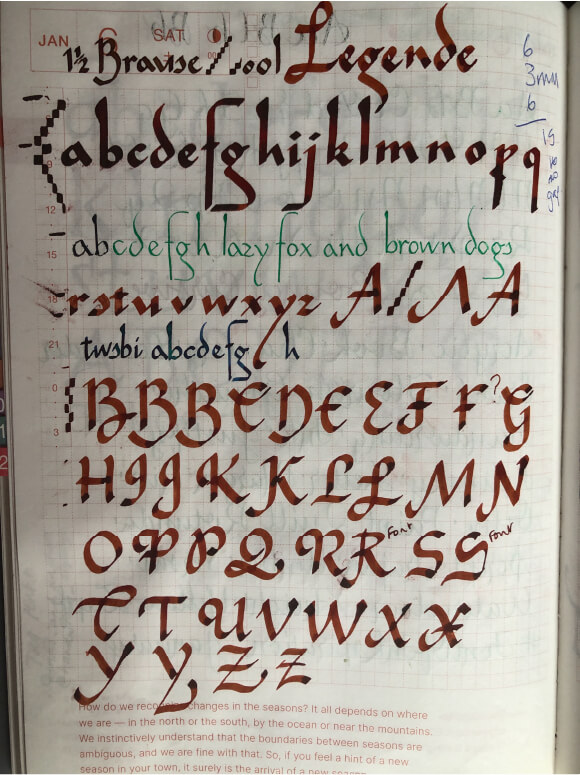 JAN 6 SAT
1½ Brause / tool Legende
6
3mm
6
abcdefghijklmnopq
15
12
abcdefgh lazy fox and brown dogs
15
rstuvwxyz A / A A
18
twsbi abcdefg h
21
0
BBBCDEEFF?G
3
HIJKKLLMN
OPPQRR Font SS Font
TTUVWXX
YYZZ
How do we recognize changes in the seasons? It all depends on where
we are — in the north or the south, by the ocean or near the mountains.
We instinctively understand that the boundaries between seasons are
ambiguous, and we are fine with that. So, if you feel a hint of a new
season in your town, it surely is the arrival of a new season